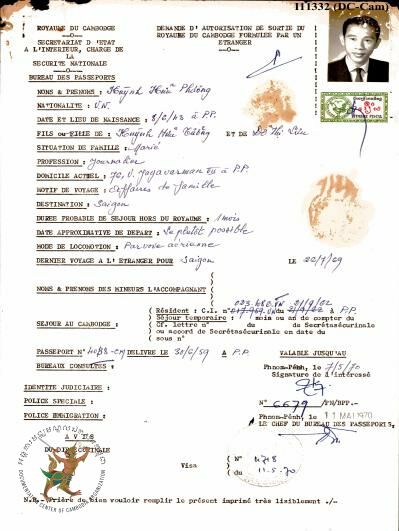 111332 (DC-Cam)
ROYAUME DU CAMBODGE
DEMANDE D'AUTORISATION DE SORTIE DU
ROYAUME DU CAMBODGE FORMULEE PAR UN
ETRANGER
SECRETARIAT D'ETAT
A L'INTERIEUR, CHARGE DE
LA
SECURITE NATIONALE
BUREAU DES PASSEPORTS
NOMS & PRENOMS : Huỳnh Hữu Phương
NATIONALITE : V.N.
DATE ET LIEU DE NAISSANCE : à P.P.
FILS ou FILLE DE : Huỳnh Hữu ET DE
SITUATION DE FAMILLE : Marié
PROFESSION : Journalier
DOMICILE ACTUEL : 70, V. Jayavarman à P.P.
MOTIF DE VOYAGE : Affaires de famille
DESTINATION : Saigon
DUREE PROBABLE DE SEJOUR HORS DU ROYAUME : 1 mois
DATE APPROXIMATIVE DE DEPART : Le plutôt possible
MODE DE LOCOMOTION : Par voie aérienne
DERNIER VOYAGE A L'ETRANGER POUR Saigon LE
NOMS & PRENOMS DES MINEURS L'ACCOMPAGNANT
SEJOUR AU CAMBODGE :
Résident : C.I. n° du à P.P.
Séjour temporaire : mois ou an de compter du
Cf. lettre n° du de Secrétasécurinale
ou accord de Secrétasécurinale en date du
sous n°
PASSEPORT N° DELIVRE LE A P.P VALABLE JUSQU'AU
BUREAUX CONSULTES :
Phnom-Penh, le 7/5/70
Signature de l'intéressé
IDENTITE JUDICIAIRE :
POLICE SPECIALE :
POLICE IMMIGRATION :
N° 6679 /PH/BPP.-
Phnom-Penh, le 11 MAI 1970
LE CHEF DU BUREAU DES PASSEPORTS,
AVIS
DOCUMENTATION CENTER OF CAMBODIA
Visa
N° 4718
du 11.5.70
N.B.- Prière de bien vouloir remplir le présent imprimé très lisiblement ./-